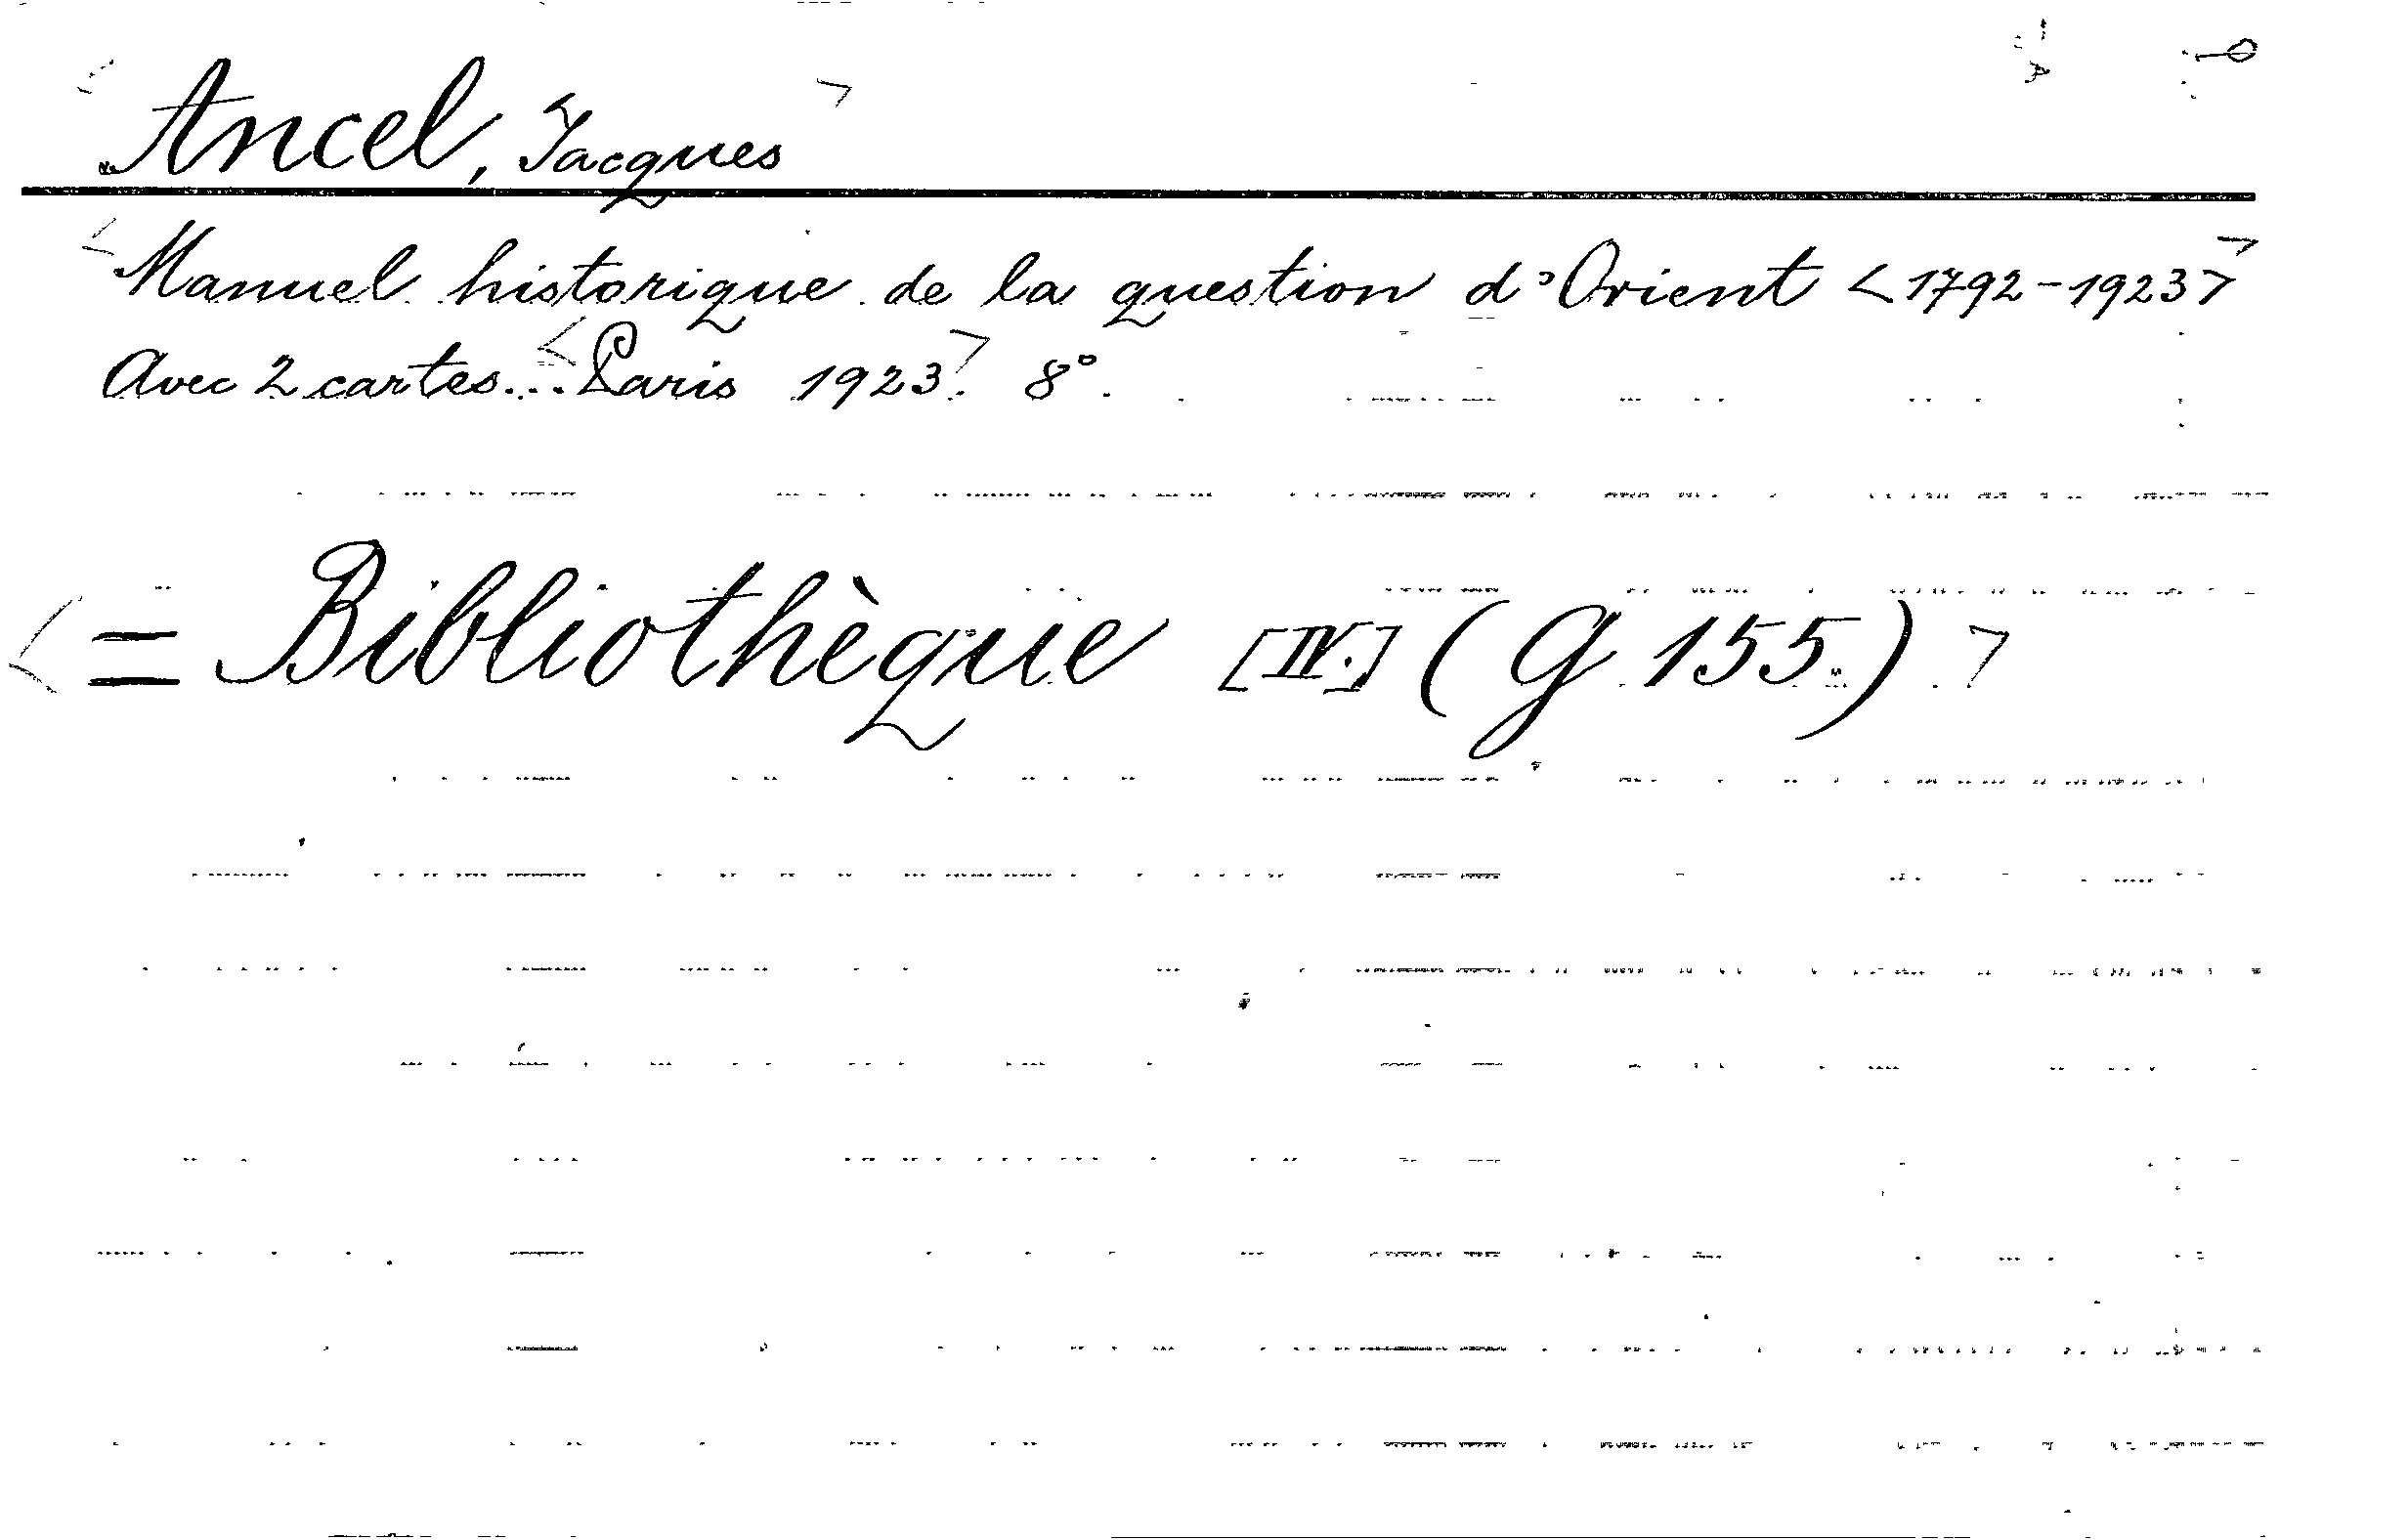 Ancel, Jacques
Manuel historique de la question d'Orient <1792-1923>
Avec 2 cartes... Paris 1923. 8°.
= Bibliothèque [IV.] (G 155.)